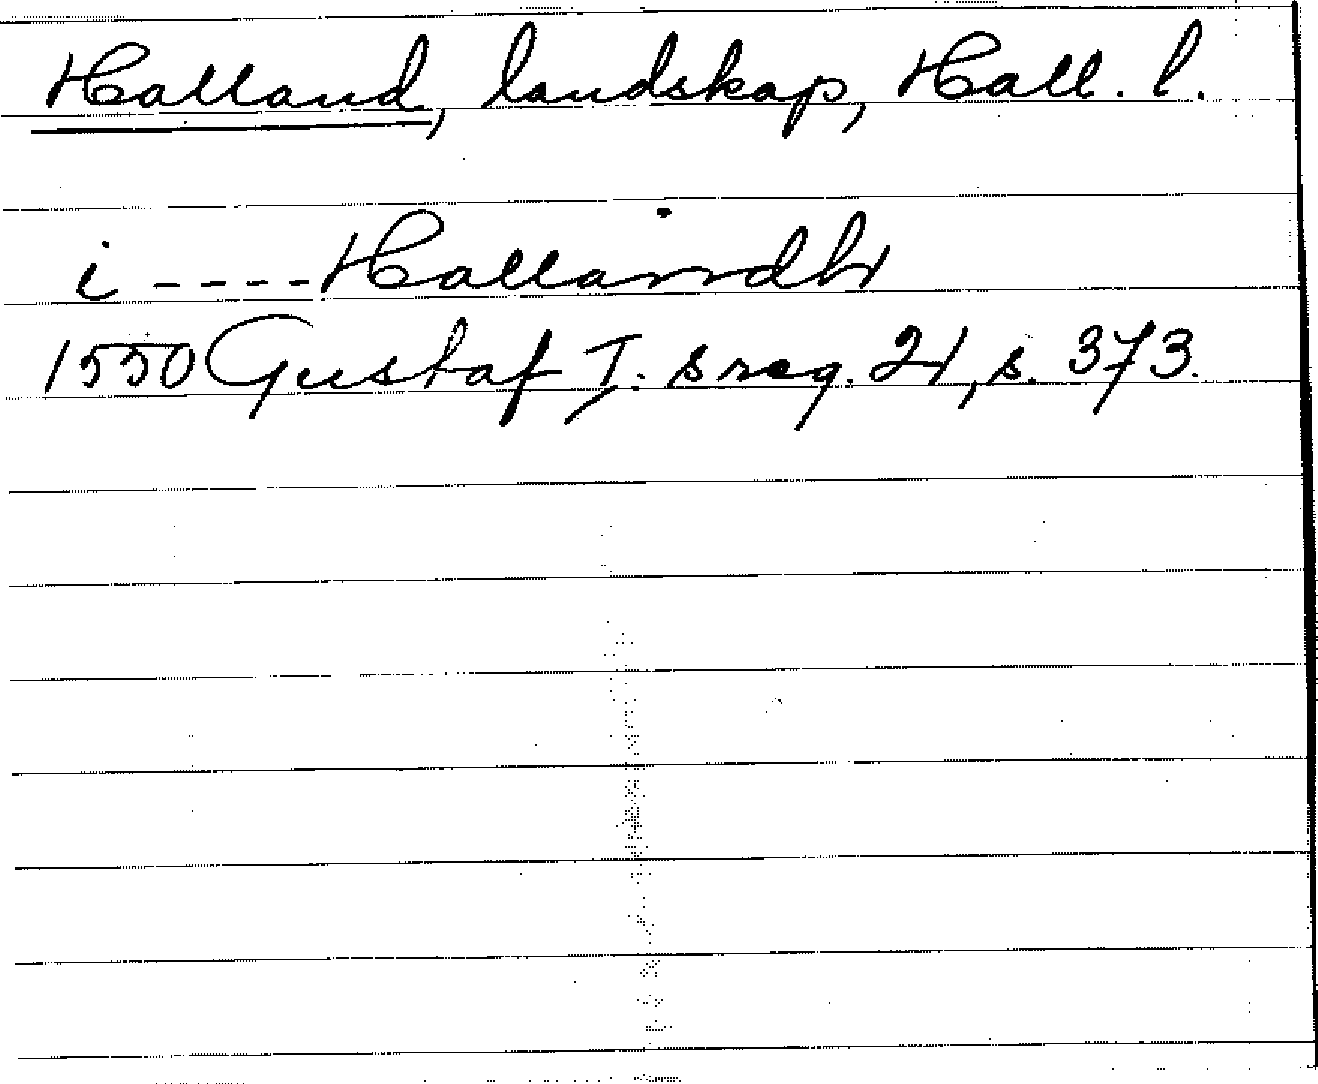 Halland, landskap, Hall. l.
i ---- Hallanndh
1550 Gustaf I:s reg. 21, s. 373.